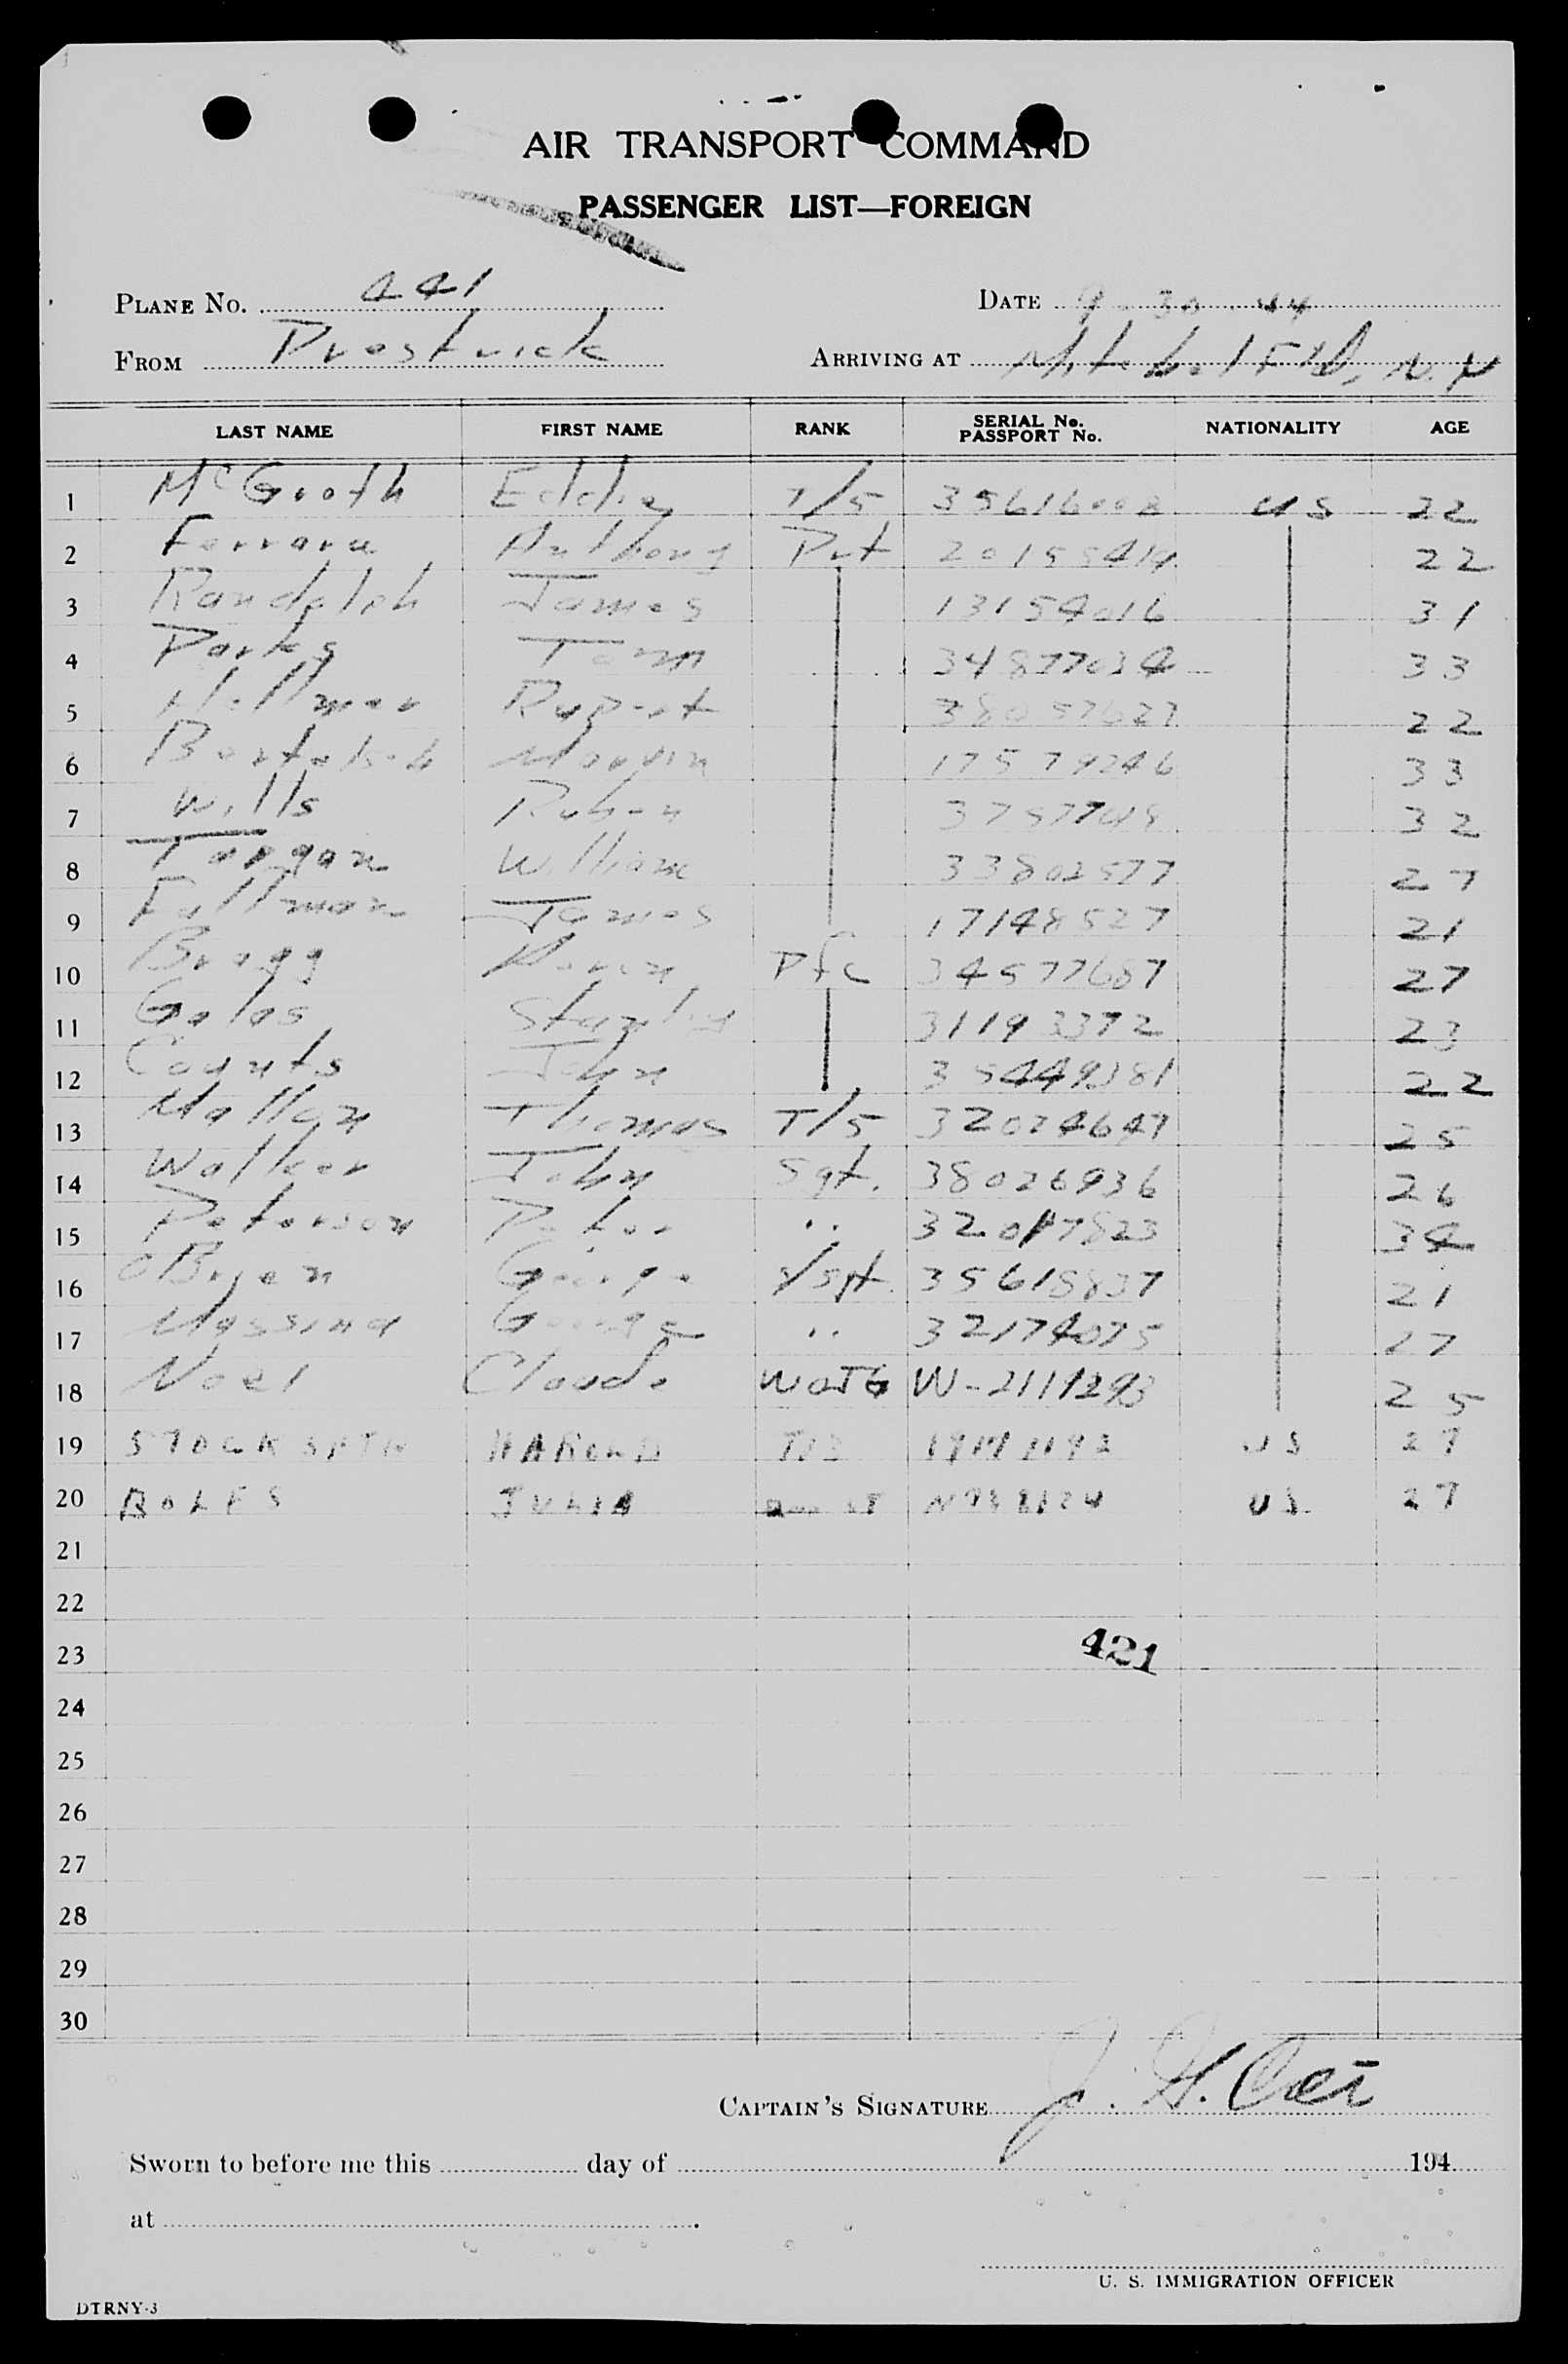 AIR TRANSPORT COMMAND
PASSENGER LIST—FOREIGN
PLANE NO. 441 DATE 9-30-44
FROM Prestwick ARRIVING AT Mitchel Fld, N.Y
LAST NAME FIRST NAME RANK SERIAL No. PASSPORT No. NATIONALITY AGE
1 McGrath Eddie T/5 35616002 US 22
2 Ferrara Anthony Pvt 22
3 Randolph James 13154016 31
4 Parks Tom 34877034 33
5 Rupert 38057627 22
6 Marvin 17579246 33
7 Wills Ruben 32
8 William 33802577 27
9 Fallman James 17148527 21
10 Bragg Pfc 34577687 27
11 Galas Stanley 31193372 23
12 Counts John 35449381 22
13 Mallon Thomas T/5 32024647 25
14 Walker John Sgt. 38026936 26
15 Peterson Peter " 32017823 34
16 OBrien George S/Sgt. 35618837 21
17 Massina George " 32174075 27
18 Noel Claude WOJG W-2111293 25
19 HAROLD US 27
20 BOLES JULIA US 27
21
22
23 421
24
25
26
27
28
29
30
CAPTAIN'S SIGNATURE J. H.
Sworn to before me this day of 194
at .
U. S. IMMIGRATION OFFICER
DTRNY-3